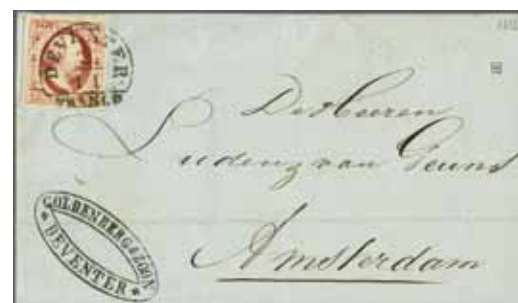 DEVENTER
FRANCO
De Heeren
Ludenz van Geuns
Amsterdam
GOLDENBERG & ZOON
* DEVENTER *